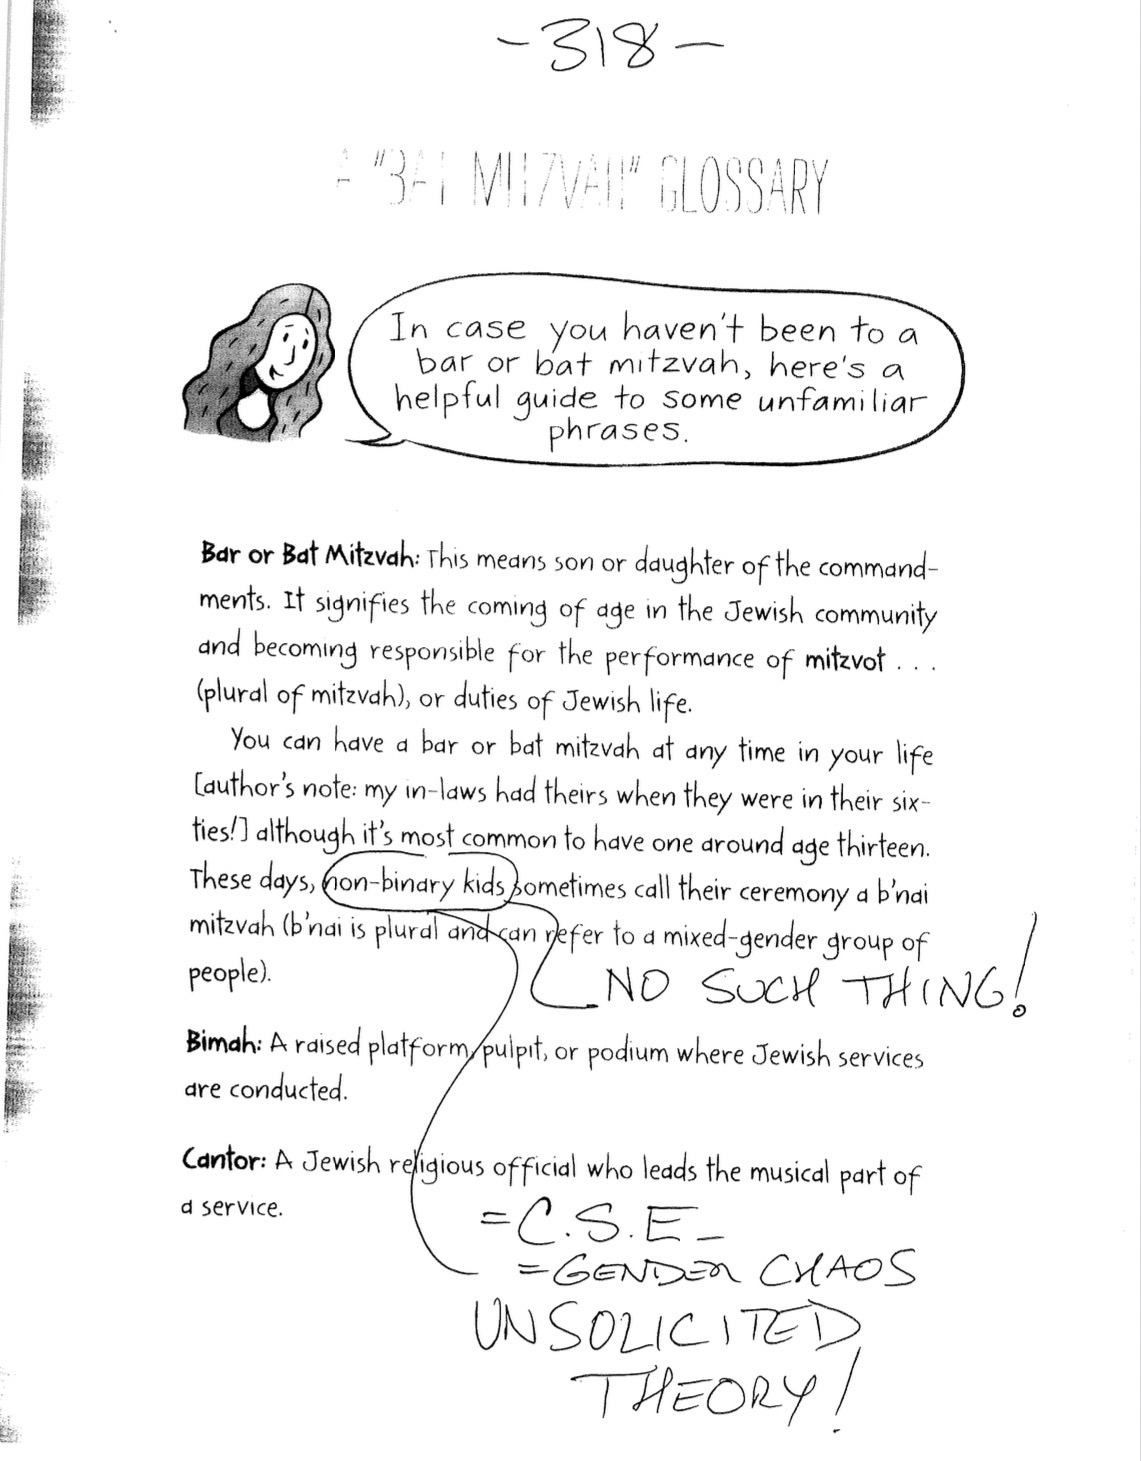 -318-
A "BAT MITZVAH" GLOSSARY
In case you haven't been to a
bar or bat mitzvah, here's a
helpful guide to some unfamiliar
phrases.
Bar or Bat Mitzvah: This means son or daughter of the command-
ments. It signifies the coming of age in the Jewish community
and becoming responsible for the performance of mitzvot . . .
(plural of mitzvah), or duties of Jewish life.
You can have a bar or bat mitzvah at any time in your life
[author's note: my in-laws had theirs when they were in their six-
ties!] although it's most common to have one around age thirteen.
These days, non-binary kids sometimes call their ceremony a b'nai
mitzvah (b'nai is plural and can refer to a mixed-gender group of
people).
NO SUCH THING!
Bimah: A raised platform, pulpit, or podium where Jewish services
are conducted.
Cantor: A Jewish religious official who leads the musical part of
a service.
=C.S.E-
=GENDER CHAOS
UNSOLICITED
THEORY!